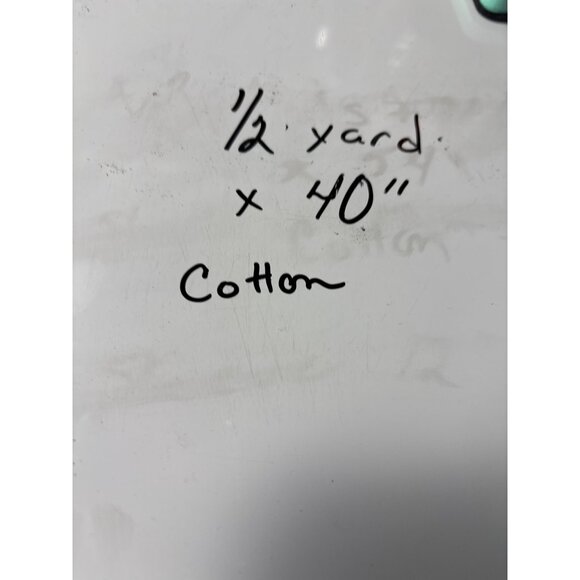 1/2 yard
x 40"
Cotton